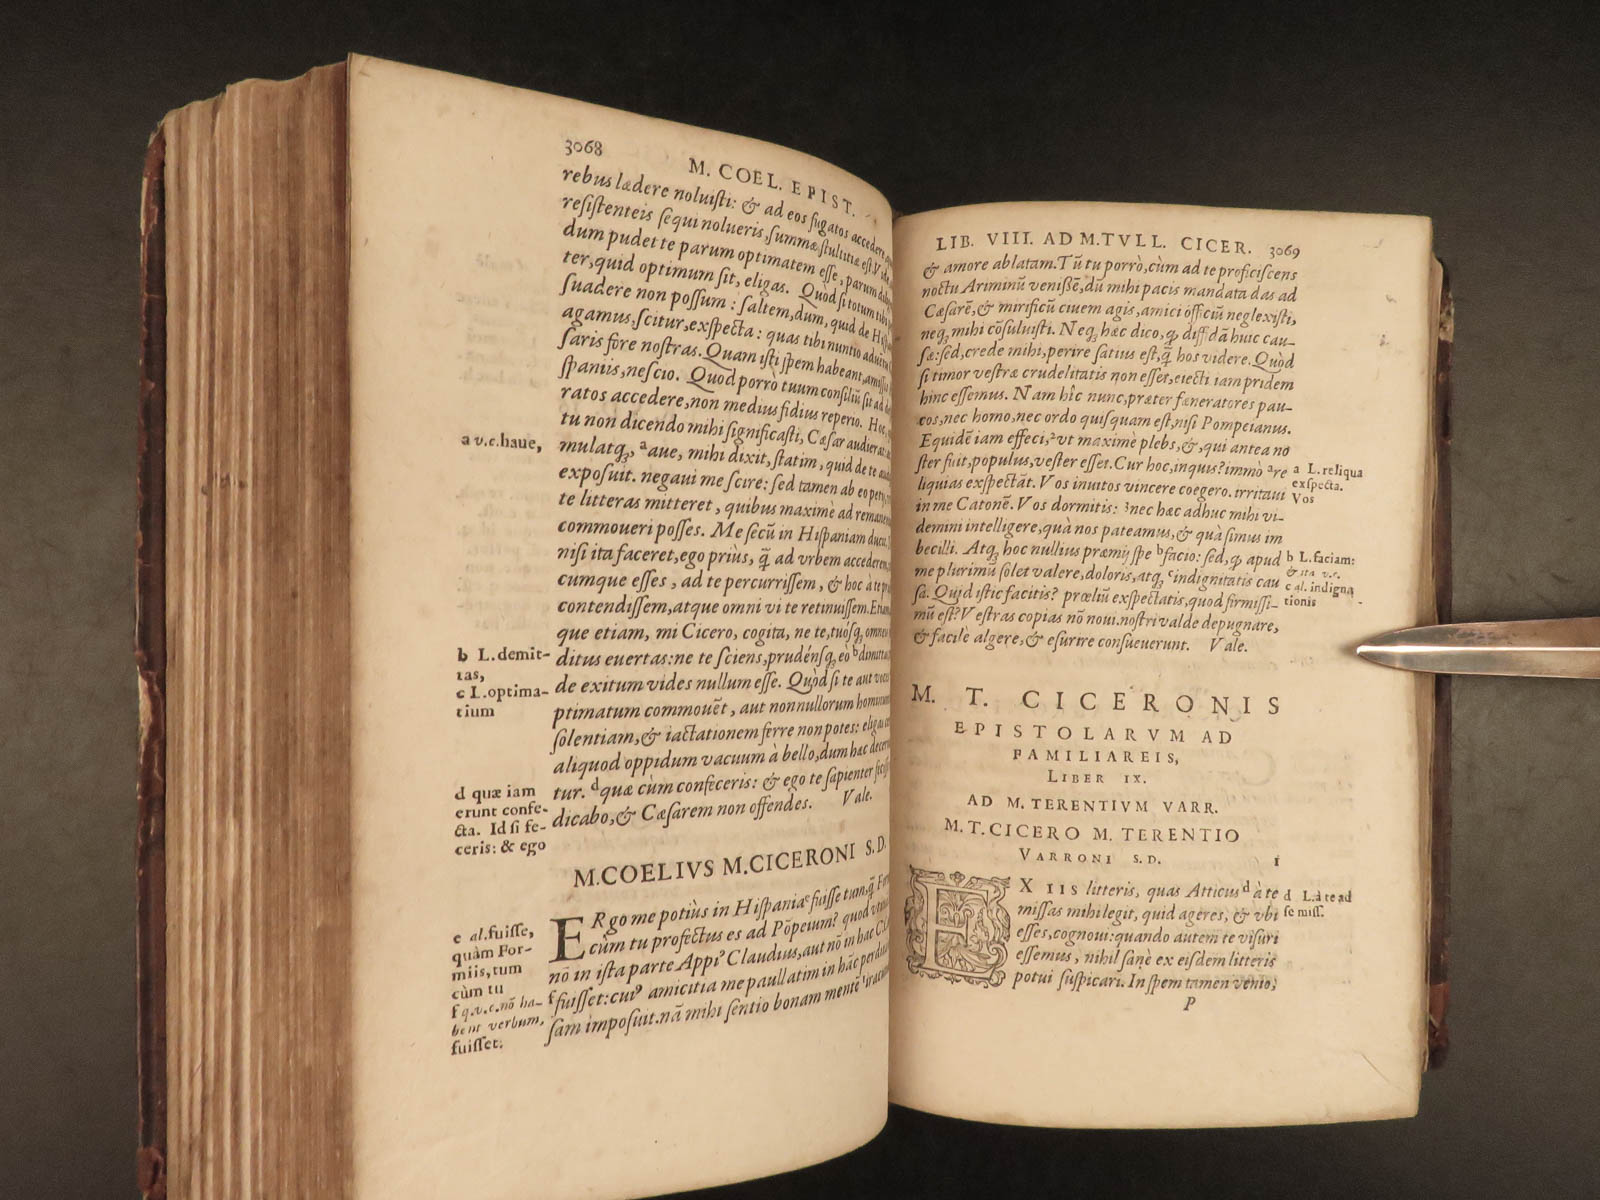 3068
M. COEL. EPIST.
rebus lædere noluiſti: & ad eos fugatos accedere
reſiſtenteis ſequi nolueris, ſummæ ſtultitiæ eſt. Vide
dum pudet te parum optimatem eſſe, parum
ter, quid optimum ſit, eligas. Quòd ſi totum tibi
ſuadere non poſſum: ſaltem, dum, quid de
agamus, ſcitur, exſpecta: quas tibi nuntio
ſaris fore noſtras. Quam iſti ſpem habeant,
ſpaniis, neſcio. Quod porrò tuum conſiliũ ſit ad
ratos accedere, non medius fidius reperio.
tu non dicendo mihi ſignificaſti, Cæſar audierat:
a v.c. haue,
mulatq́;, ᵃ aue, mihi dixit, ſtatim, quid de te
expoſuit. negaui me ſcire: ſed tamen ab eo
te litteras mitteret, quibus maximè ad
commoueri poſſes. Me ſecũ in Hiſpaniam
niſi ita faceret, ego priùs, q̃ ad vrbem accederem,
cumque eſſes, ad te percurriſſem, & hoc à te
contendiſſem, atque omni vi te retinuiſſem.
que etiam, mi Cicero, cogita, ne te, tuóſq́;
b L. demit-
tas,
c L. optima-
tium
ditus euertas: ne te ſciens, prudénſq́; eò
de exitum vides nullum eſſe. Quòd ſi te aut
ptimatum commouẽt, aut nonnullorum hominum
ſolentiam, & iactationem ferre non potes: eligas
aliquod oppidum vacuum à bello, dum hæc
d quæ iam
erunt confe-
cta. Id ſi fe-
ceris: & ego
tur. ᵈ quæ cùm confeceris: & ego te ſapienter
dicabo, & Cæſarem non offendes. Vale.
M. COELIVS M. CICERONI S. D.
e al. fuiſſe,
quàm For-
miis, tum
cùm tu
f q. v. c. nõ ha-
bent verbum,
fuiſſet:
ERgo me potiùs in Hiſpania ᵉ fuiſſe tum, q̃
cùm tu profectus es ad Põpeium? quod
nõ in iſta parte Appiꝰ Claudius, aut nõ in hac
ᶠ fuiſſet: cuiꝰ amicitia me paullatim in hãc
ſam impoſuit. nã mihi ſentio bonam mentẽ
LIB. VIII. AD M. TVLL. CICER. 3069
& amore ablatam. Tũ tu porrò, cùm ad te proficiſcens
noctu Ariminũ veniſſẽ, dũ mihi pacis mandata das ad
Cæſarẽ, & mirificũ ciuem agis, amici officiũ neglexiſti,
neq́; mihi cõſuluiſti. Neq́; hæc dico, q́; diffidã huic cau-
ſæ: ſed, crede mihi, perire ſatius eſt, q̃ hos videre. Quòd
ſi timor veſtræ crudelitatis non eſſet, eiecti iam pridem
hinc eſſemus. Nam hîc nunc, præter fœneratores pau-
cos, nec homo, nec ordo quiſquam eſt, niſi Pompeianus.
Equidẽ iam effeci, vt maximè plebs, &, qui antea no
ſter fuit, populus, veſter eſſet. Cur hoc, inquis? immò ᵃ re
liquias exſpectãt. Vos inuitos vincere coegero. irritaui
a L. reliqua
exſpecta.
Vos
in me Catonẽ. Vos dormitis: nec hæc adhuc mihi vi-
demini intelligere, quà nos pateamus, & quà ſimus im
becilli. Atq́; hoc nullius præmij ſpe ᵇ facio: ſed, q́; apud
me plurimũ ſolet valere, doloris, atq́; ᶜ indignitatis cau
ſa. Quid iſtic facitis? prœliũ exſpectatis, quod firmiſſi-
mũ eſt? Veſtras copias nõ noui. noſtri valde depugnare,
& facilè algere, & eſurire conſueuerunt. Vale.
b L. faciam:
& ita v.c.
c al. indigna
tionis
M. T. CICERONIS
EPISTOLARVM AD
FAMILIAREIS,
LIBER IX.
AD M. TERENTIVM VARR.
M. T. CICERO M. TERENTIO
VARRONI S. D. I
EX IIS litteris, quas Atticus ᵈ à te
miſſas mihi legit, quid ageres, & vbi
eſſes, cognoui: quando autem te viſuri
eſſemus, nihil ſanè ex eiſdem litteris
potui ſuſpicari. In ſpem tamen venio,
d L. à te ad
ſe miſſ.
P